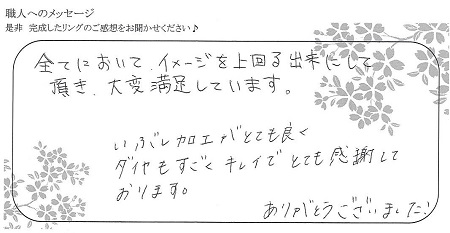 職人へのメッセージ
是非 完成したリングのご感想をお聞かせください♪
全てにおいて、イメージを上回る出来にして
頂き、大変満足しています。
いぶし加工がとても良く
ダイヤもすごくキレイでとても感謝して
おります。
ありがとうございました!